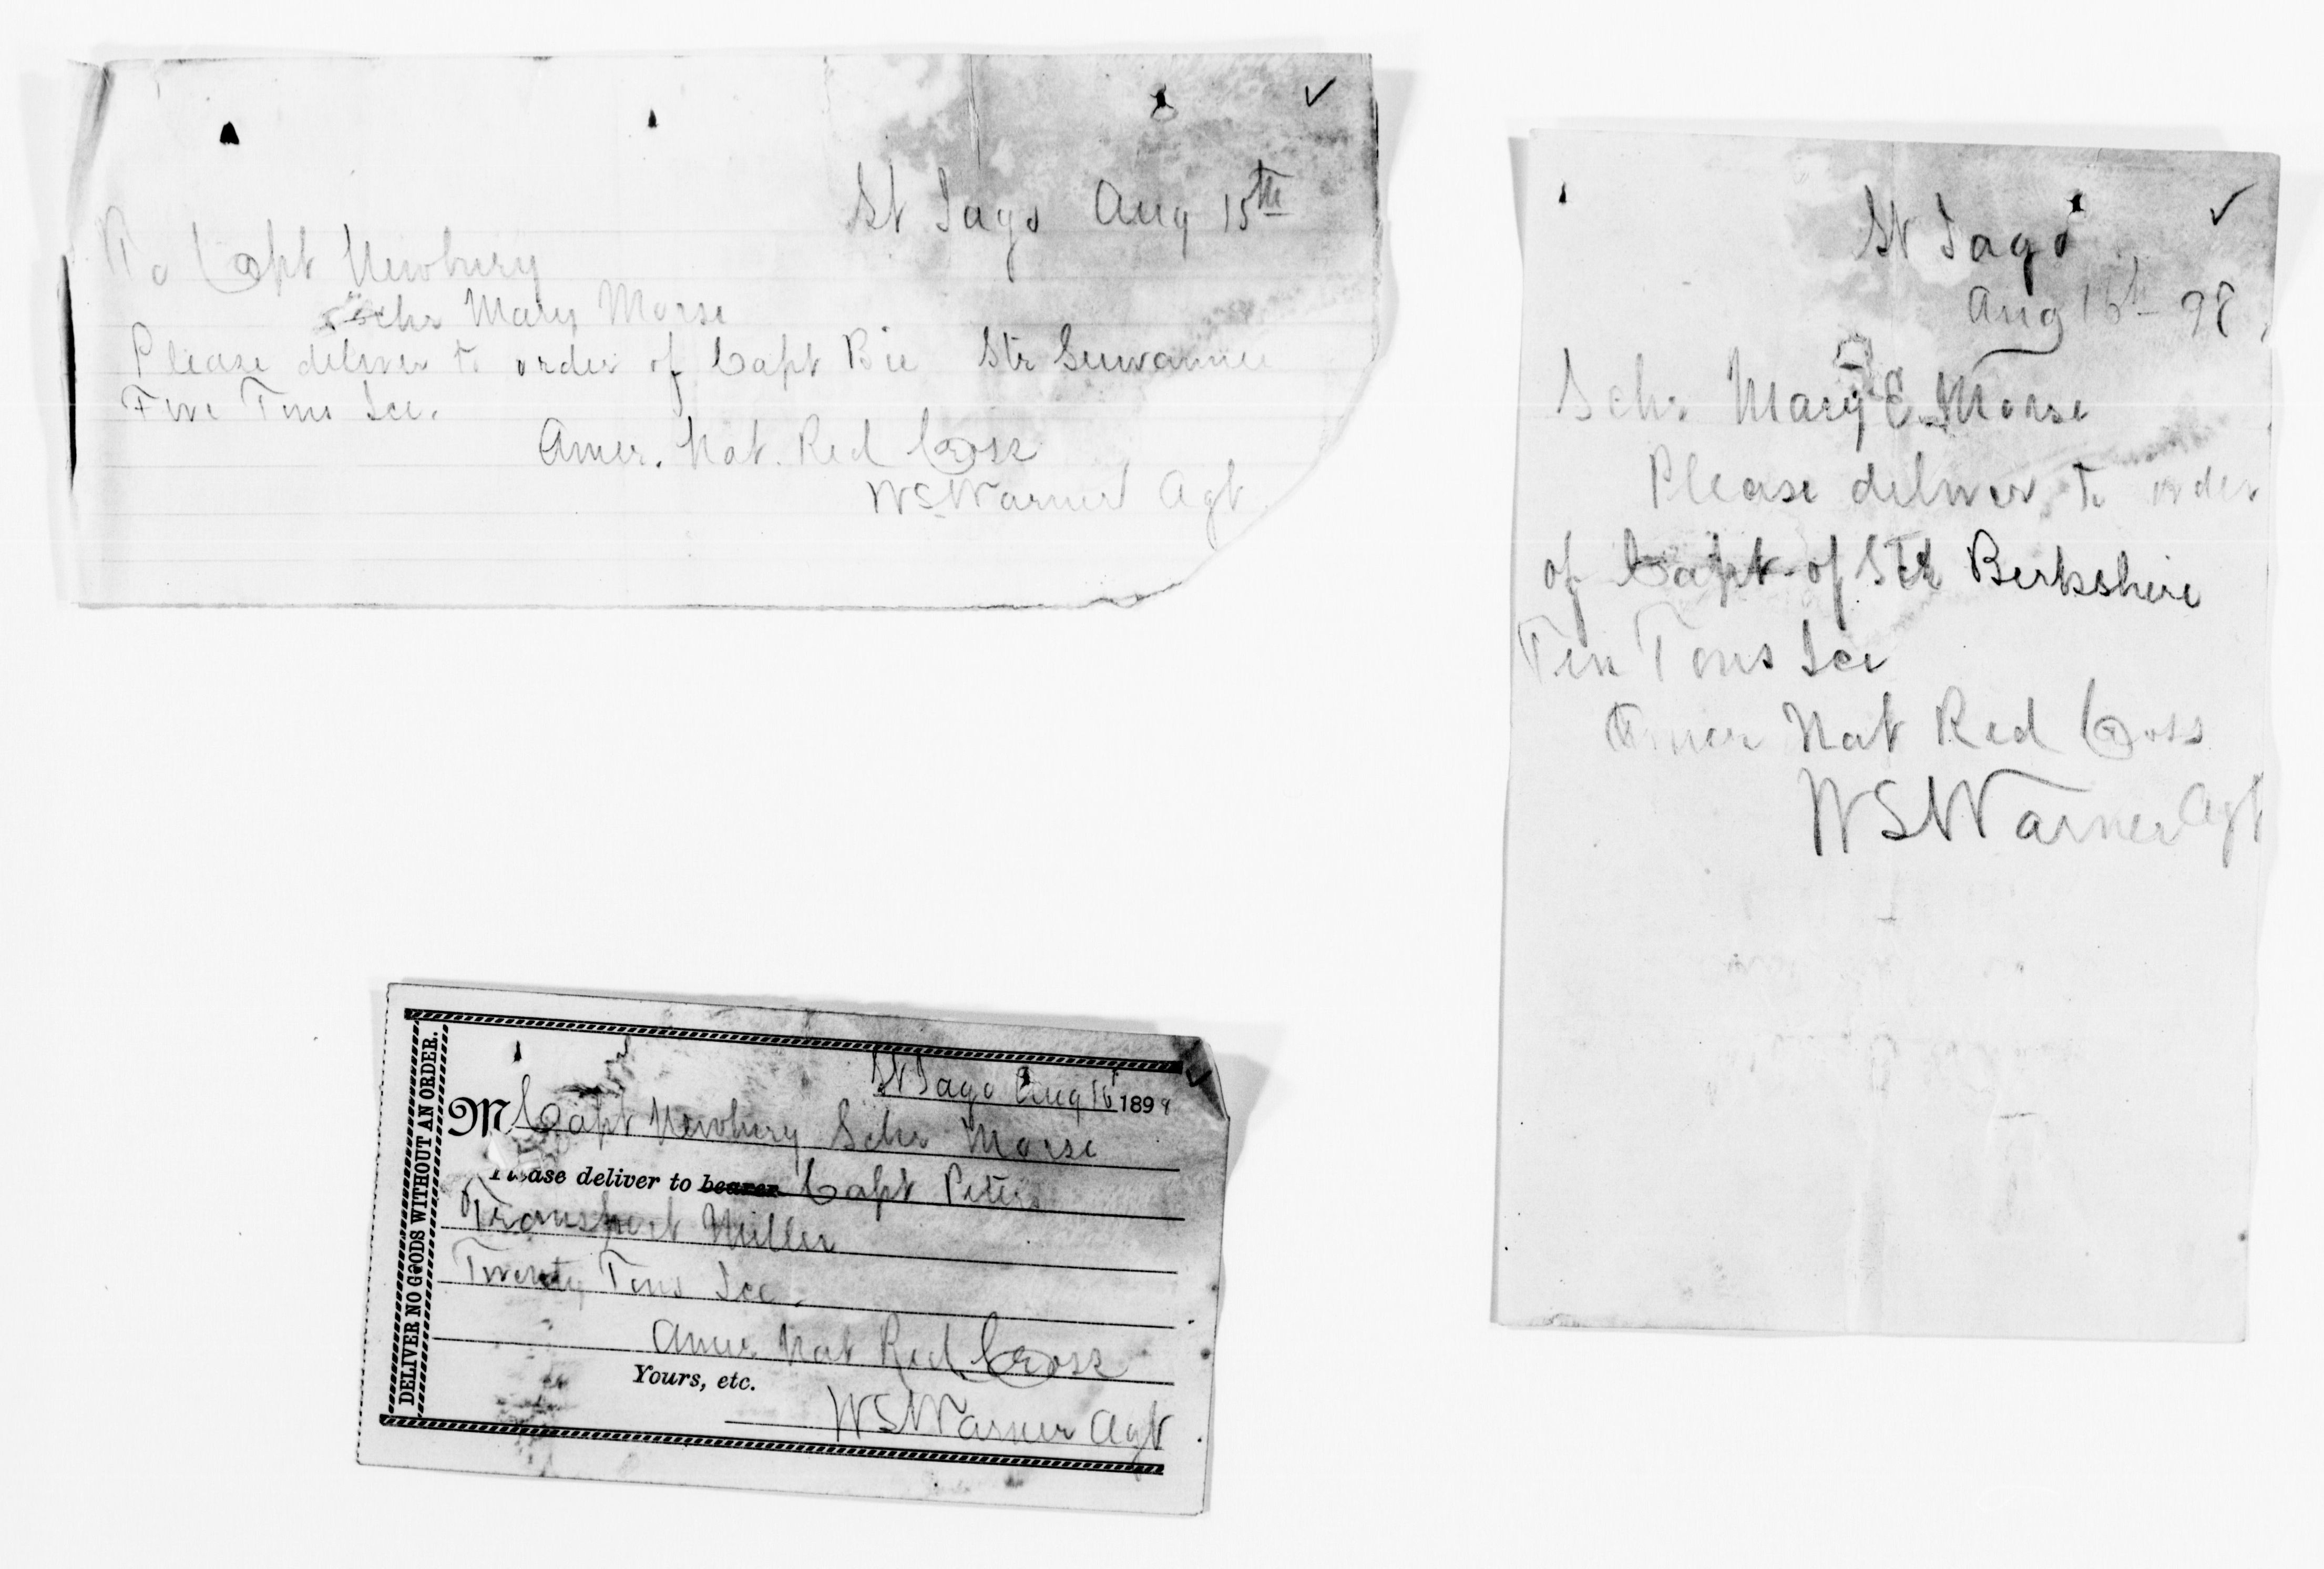 St Jago Aug 15th
To Capt Newbury
Schr Mary Morse
Please deliver to order of Capt Bie Str Suwannee
Five Tons Ice.
Amer. Nat. Red Cross
WSWarner Agt
St Jago
Aug 16th 98
Schr Mary E Morse
Please deliver to order
of Capt of Str Berkshire
Ten Tons Ice
Amer Nat Red Cross
WSWarner Agt
DELIVER NO GOODS WITHOUT AN ORDER.
St Jago Aug 16 1898
M Capt Newbury Schr Morse
Please deliver to bearer Capt Peters
Transport Miller
Twenty Tons Ice.
Amer Nat Red Cross
Yours, etc.
WSWarner Agt